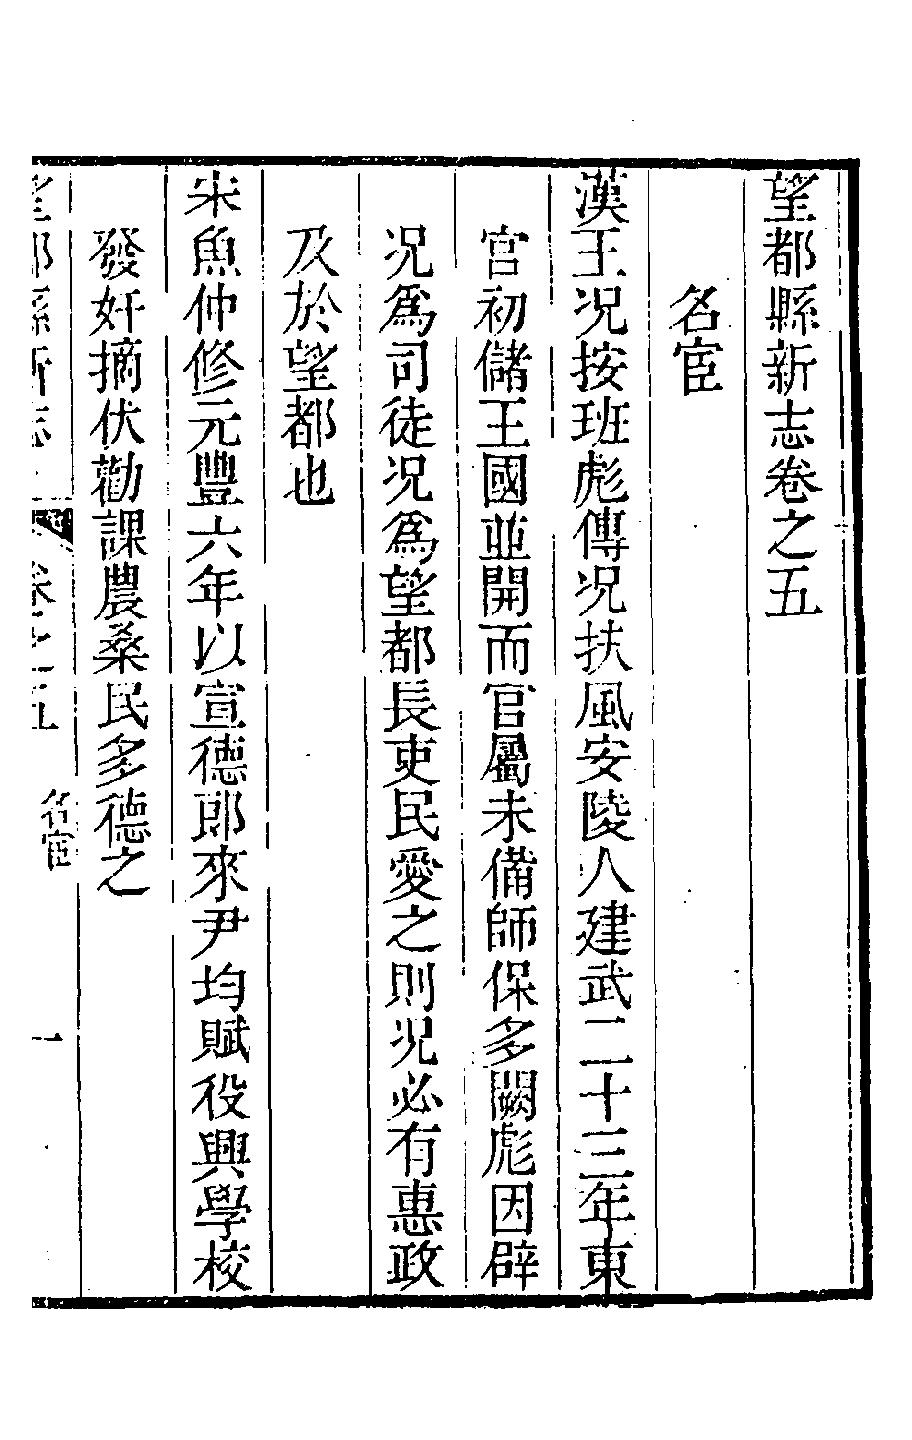 望都縣新志卷之五
名宦
漢王况按班彪傳况扶風安陵人建武二十三年東
宮初儲王國並開而官屬未備師保多闕彪因辟
况爲司徒况爲望都長吏民愛之則况必有惠政
及於望都也
宋魚仲修元豐六年以宣德郎來尹均賦役興學校
發奸摘伏勸課農桑民多德之
望都縣新志 卷之五 名宦 一